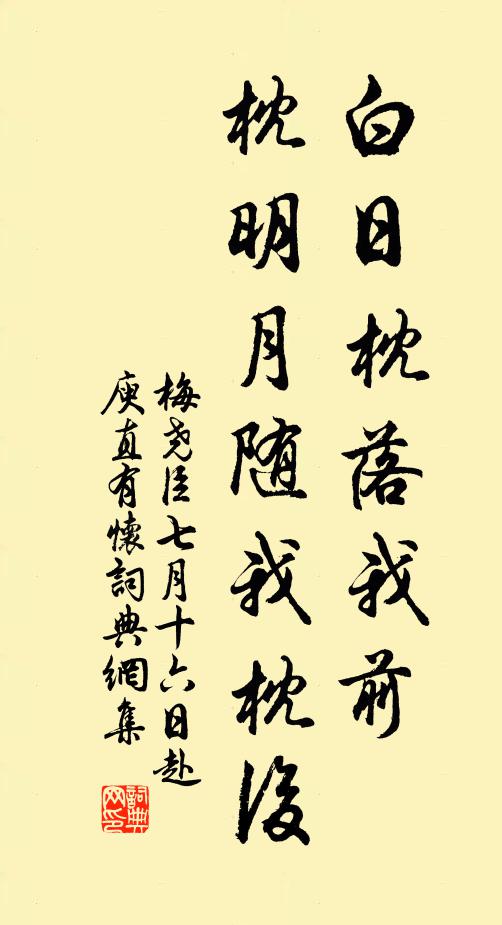 白日枕落我前
枕明月随我枕後
梅尧臣七月十六日赴
庾直有懷詞典網集
詞典
网印